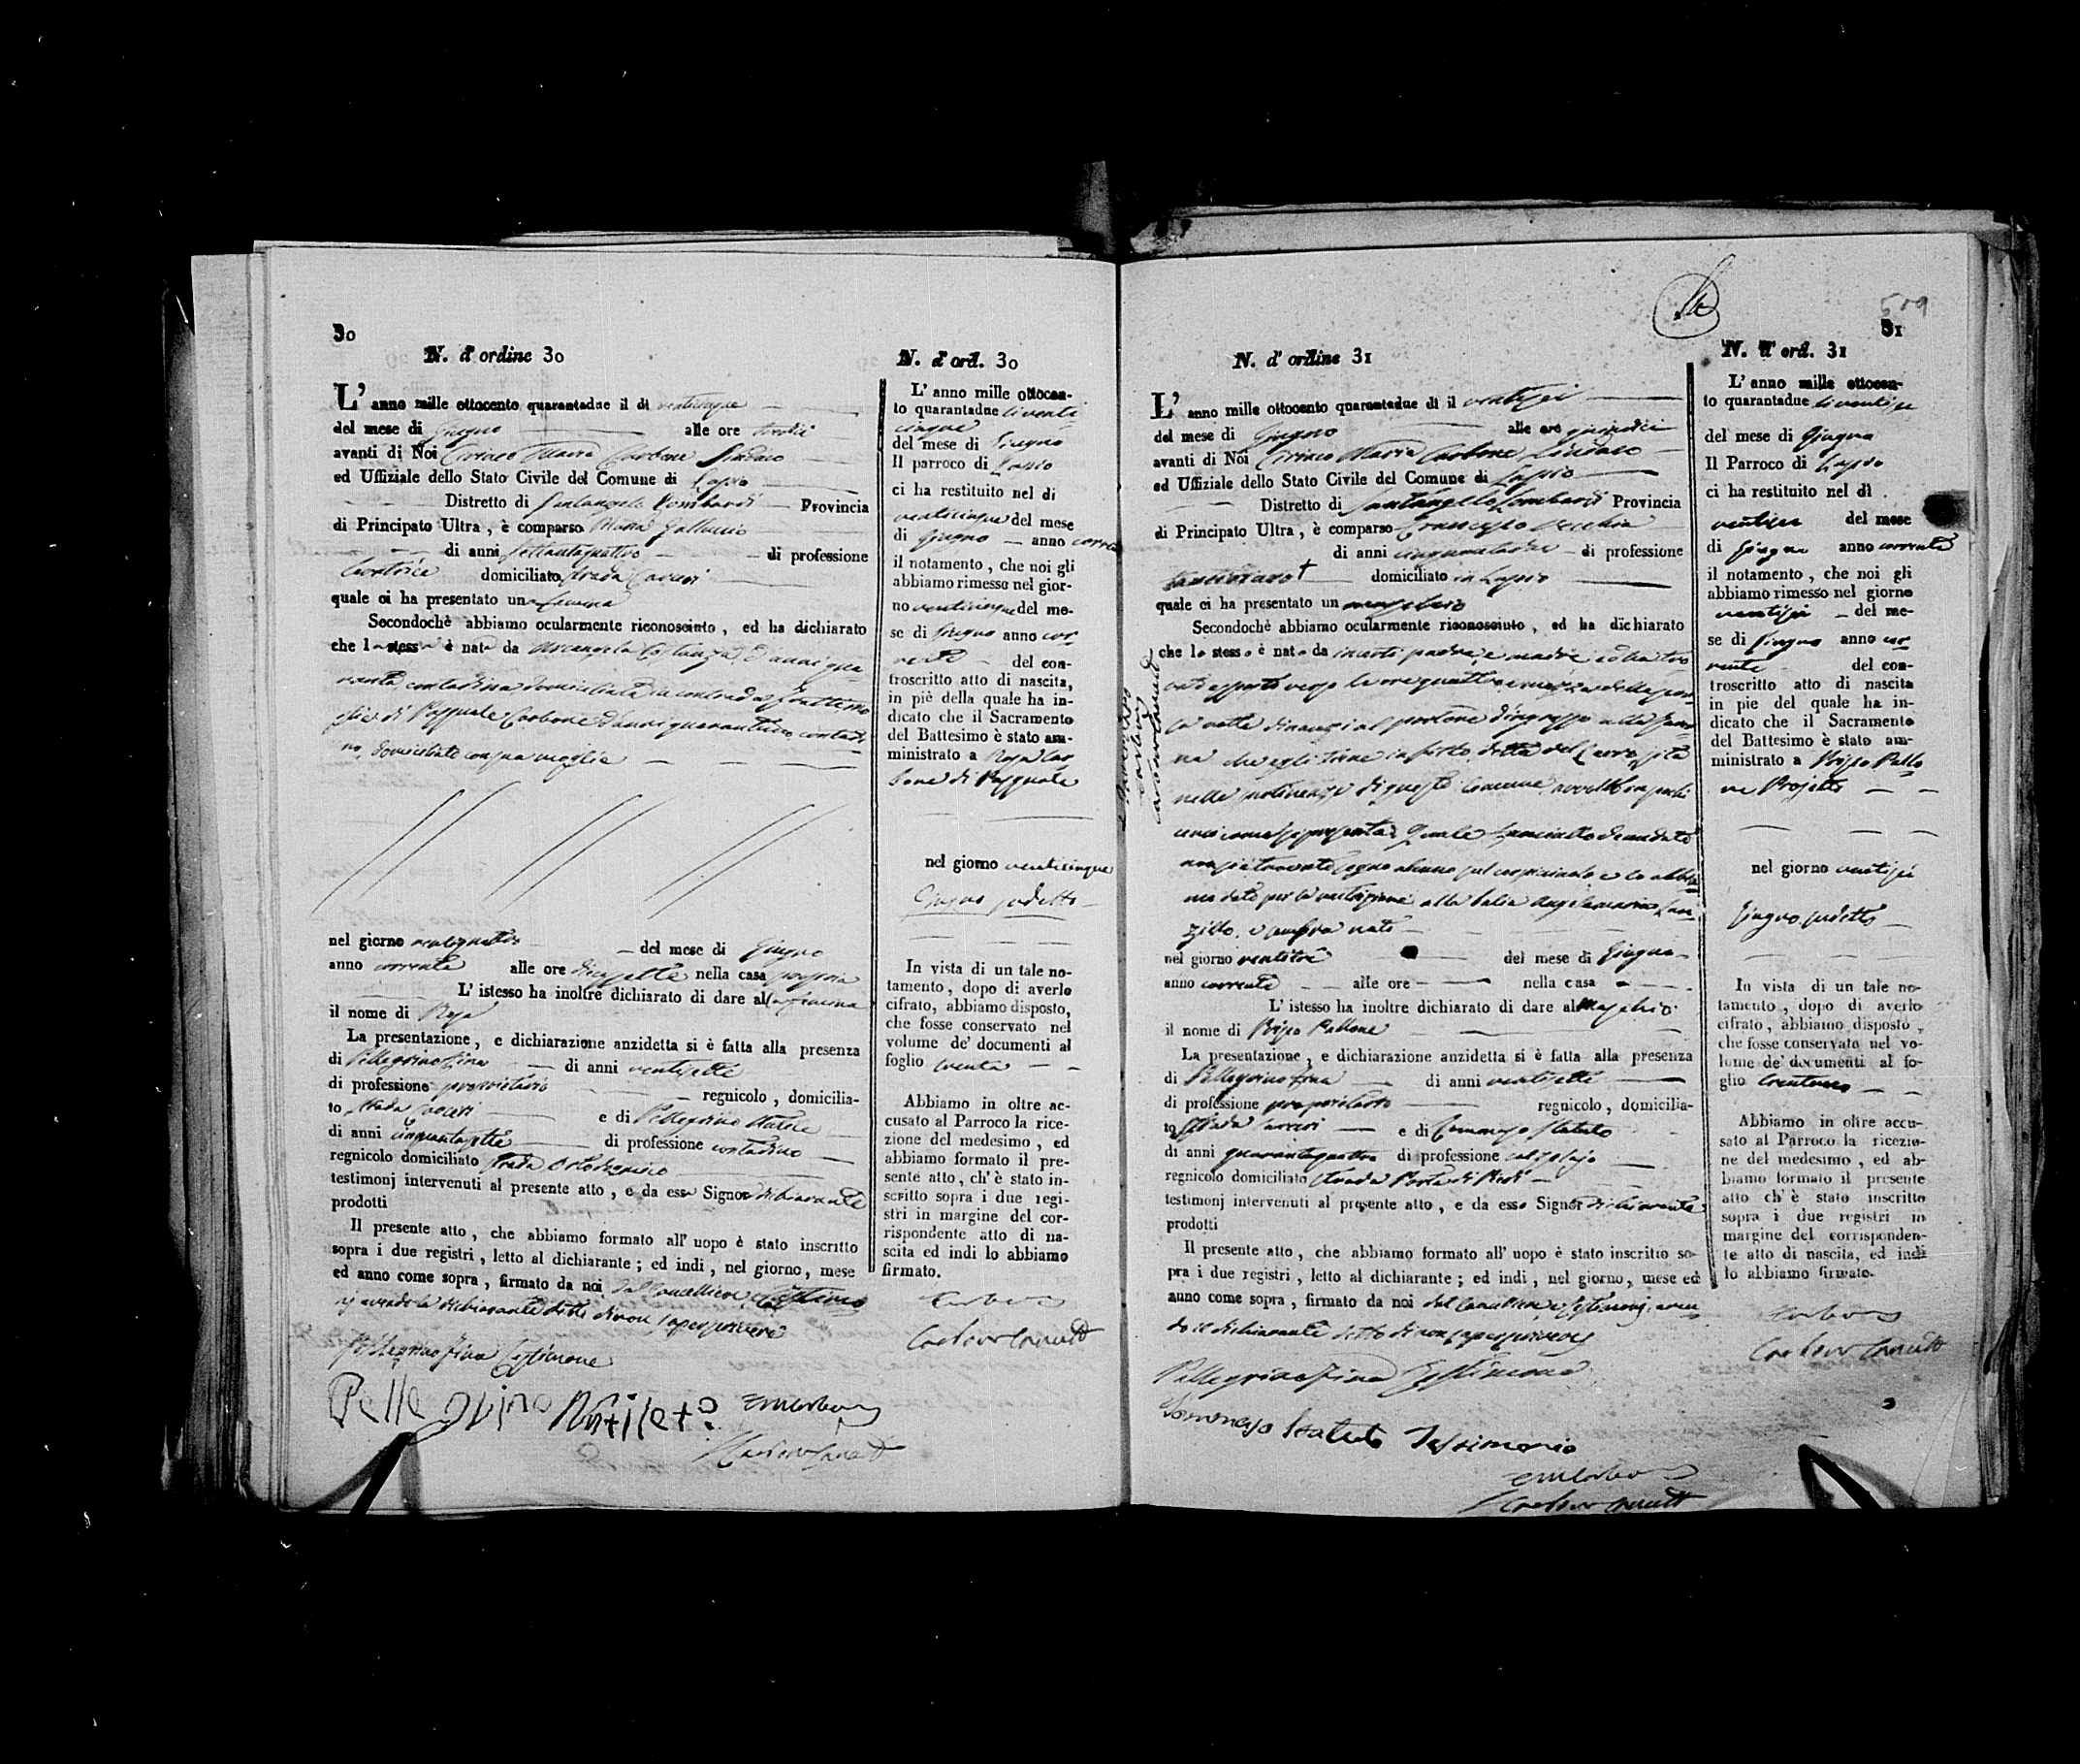 30
N. d' ordine 30
L' anno mille ottocento quarantadue il dì venticinque
del mese di Giugno alle ore tredici
avanti di Noi Ciriaco Maria Carbone Sindaco
ed Uffiziale dello Stato Civile del Comune di Lapio
Distretto di Santangelo Lombardi Provincia
di Principato Ultra, è comparso Maria Galluccio
di anni settantaquattro di professione
levatrice domiciliato strada
quale ci ha presentato una femina
Secondochè abbiamo ocularmente riconosciuto, ed ha dichiarato
che la stessa è nata da Arcangela Costanza, d'anni qua-
ranta contadina domiciliata in contrada mo-
glie di Pasquale Carbone d'anni contadi-
no, domiciliato con sua moglie
nel giorno ventiquattro del mese di Giugno
anno corrente alle ore diciassette nella casa propria
L' istesso ha inoltre dichiarato di dare alla femina
il nome di Rosa
La presentazione, e dichiarazione anzidetta si è fatta alla presenza
di Pellegrino Fina di anni ventisette
di professione proprietario regnicolo, domicilia-
to strada e di Pellegrino
di anni cinquantasette di professione contadino
regnicolo domiciliato strada
testimonj intervenuti al presente atto, e da essa Signor dichiarante
prodotti
Il presente atto, che abbiamo formato all' uopo è stato inscritto
sopra i due registri, letto al dichiarante; ed indi, nel giorno, mese
ed anno come sopra, firmato da noi dal Cancelliere e testimo-
nj avendo la dichiarante detto di non saper scrivere
Pellegrino Fina Testimone
Pellegrino
N. d' ord. 30
L' anno mille ottocen-
to quarantadue li venti-
cinque
del mese di Giugno
Il parroco di Lapio
ci ha restituito nel dì
venticinque del mese
di Giugno anno corre
il notamento, che noi gli
abbiamo rimesso nel gior-
no venticinque del me-
se di Giugno anno cor-
rente del con-
troscritto atto di nascita,
in piè della quale ha in-
dicato che il Sacramento
del Battesimo è stato am-
ministrato a Rosa Car-
bone di Pasquale
nel giorno venticinque
Giugno sudetto
In vista di un tale no-
tamento, dopo di averlo
cifrato, abbiamo disposto,
che fosse conservato nel
volume de' documenti al
foglio trenta
Abbiamo in oltre ac-
cusato al Parroco la rice-
zione del medesimo, ed
abbiamo formato il pre-
sente atto, ch' è stato in-
scritto sopra i due regi-
stri in margine del cor-
rispondente atto di na-
scita ed indi lo abbiamo
firmato.
509
31
N. d' ordine 31
L' anno mille ottocento quarantadue di il ventisei
del mese di Giugno alle ore quindici
avanti di Noi Ciriaco Maria Carbone Sindaco
ed Uffiziale dello Stato Civile del Comune di Lapio
Distretto di Santangelo Lombardi Provincia
di Principato Ultra, è comparso
di anni di professione
domiciliato in Lapio
quale ci ha presentato un maschio
Secondochè abbiamo ocularmente riconosciuto, ed ha dichiarato
che lo stesso è nato da incerti padre, e madre ed ha tro-
vato esposto verso le ore quattro e mezza della scor-
sa notte dinanzi al portone d'ingresso alla
na che egli tiene in fitto detta del sita
nelle pertinenze di questo Comune, avvolto in pochi
cenci come si presenta. Quale
segno alcuno sul e lo abbia-
mo dato per la nutrizione alla balia Angelamaria
e sembra nato
nel giorno ventitre del mese di Giugno
anno corrente alle ore nella casa
L' istesso ha inoltre dichiarato di dare al maschio
il nome di
La presentazione, e dichiarazione anzidetta si è fatta alla presenza
di Pellegrino Fina di anni ventisette
di professione proprietario regnicolo, domicilia-
to strada e di Tommaso Statuto
di anni quarantaquattro di professione calzolajo
regnicolo domiciliato strada Porta di
testimonj intervenuti al presente atto, e da esso Signor dichiarante
prodotti
Il presente atto, che abbiamo formato all' uopo è stato inscritto so-
pra i due registri, letto al dichiarante; ed indi, nel giorno, mese ed
anno come sopra, firmato da noi dal Cancelliere e testimonj, aven-
do il dichiarante detto di non saper scrivere
Pellegrino Fina Testimone
Tommaso Statuto Testimonio
N. d' ord. 31
L' anno mille ottocen-
to quarantadue li ventisei
del mese di Giugno
Il Parroco di Lapio
ci ha restituito nel dì
ventisei del mese
di Giugno anno corrente
il notamento, che noi gli
abbiamo rimesso nel giorno
ventisei del me-
se di Giugno anno cor-
rente del con-
troscritto atto di nascita
in pie del quale ha in-
dicato che il Sacramento
del Battesimo è stato am-
ministrato a
nel giorno ventisei
Giugno sudetto
In vista di un tale no-
tamento, dopo di averlo
cifrato, abbiamo disposto,
che fosse conservato nel vo-
lume de' documenti al fo-
glio trentuno
Abbiamo in oltre accu-
sato al Parroco la ricezio-
ne del medesimo, ed ab-
biamo formato il presente
atto ch' è stato inscritto
sopra i due registri in
margine del corrisponden-
te atto di nascita, ed indi
lo abbiamo firmato.